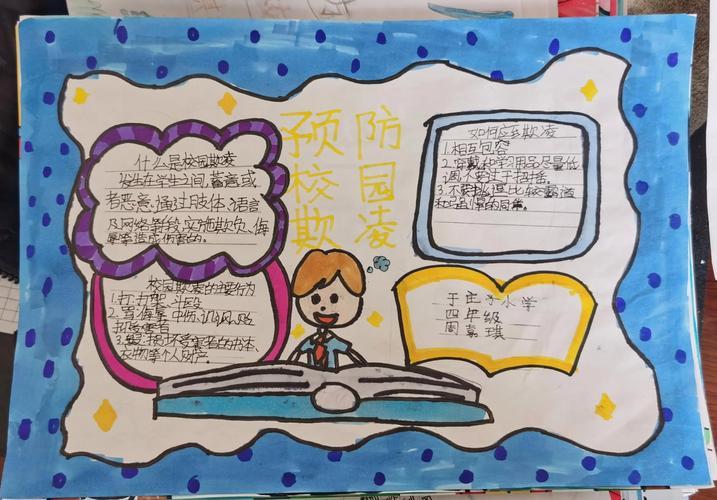 预防
校园
欺凌
什么是校园欺凌
发生在学生之间,蓄意或
者恶意通过肢体、语言
及网络等手段,实施欺负、侮
辱等造成伤害的。
校园欺凌的主要行为
1.打架、斗殴
2.辱、中伤、讥讽、贬
抑受害者
3.受害的书本、
衣物等个人财产。
如何应对欺凌
1.相互包容
2.穿戴和学习用品尽量低
调,不要过于招摇
3.不要挑逗比较霸道
和强悍的同学。
于庄子小学
四年级
周嘉琪